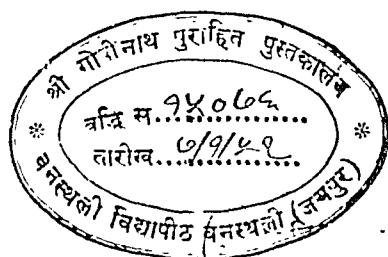 श्री गोपीनाथ पुरोहित पुस्तकालय
वृद्धि स. १५०७६
तारीख. ७/१/५१
वनस्थली विद्यापीठ वनस्थली (जयपुर)